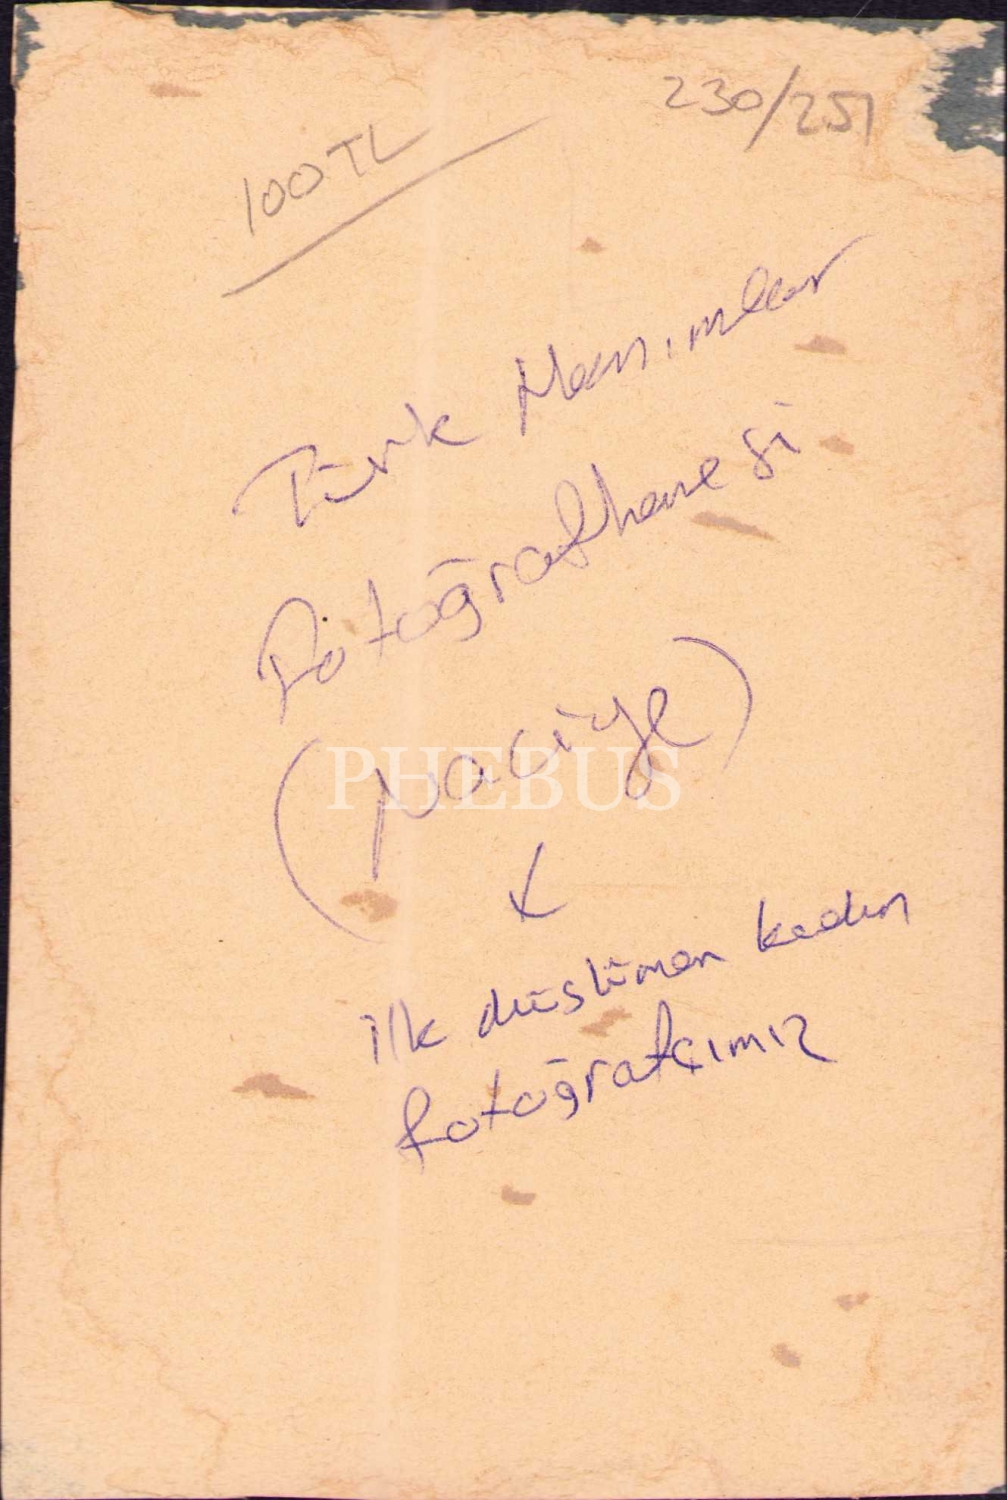 230/251
100 TL
Türk Hanımlar
Fotoğrafhanesi
(Naciye)
PHEBUS
ilk müslüman kadın
fotoğrafçımız